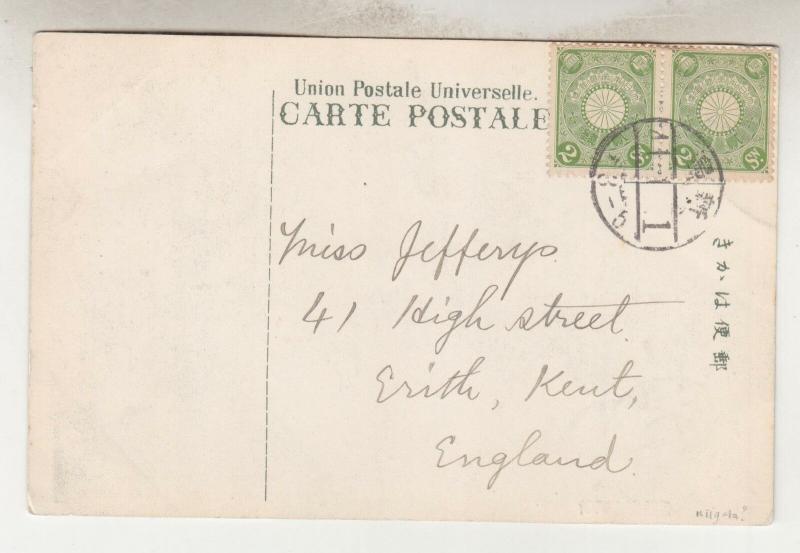 Union Postale Universelle.
CARTE POSTALE
2 2
I
Miss Jefferys
41 High street.
Erith, Kent,
England.
きかは便郵
niigata?